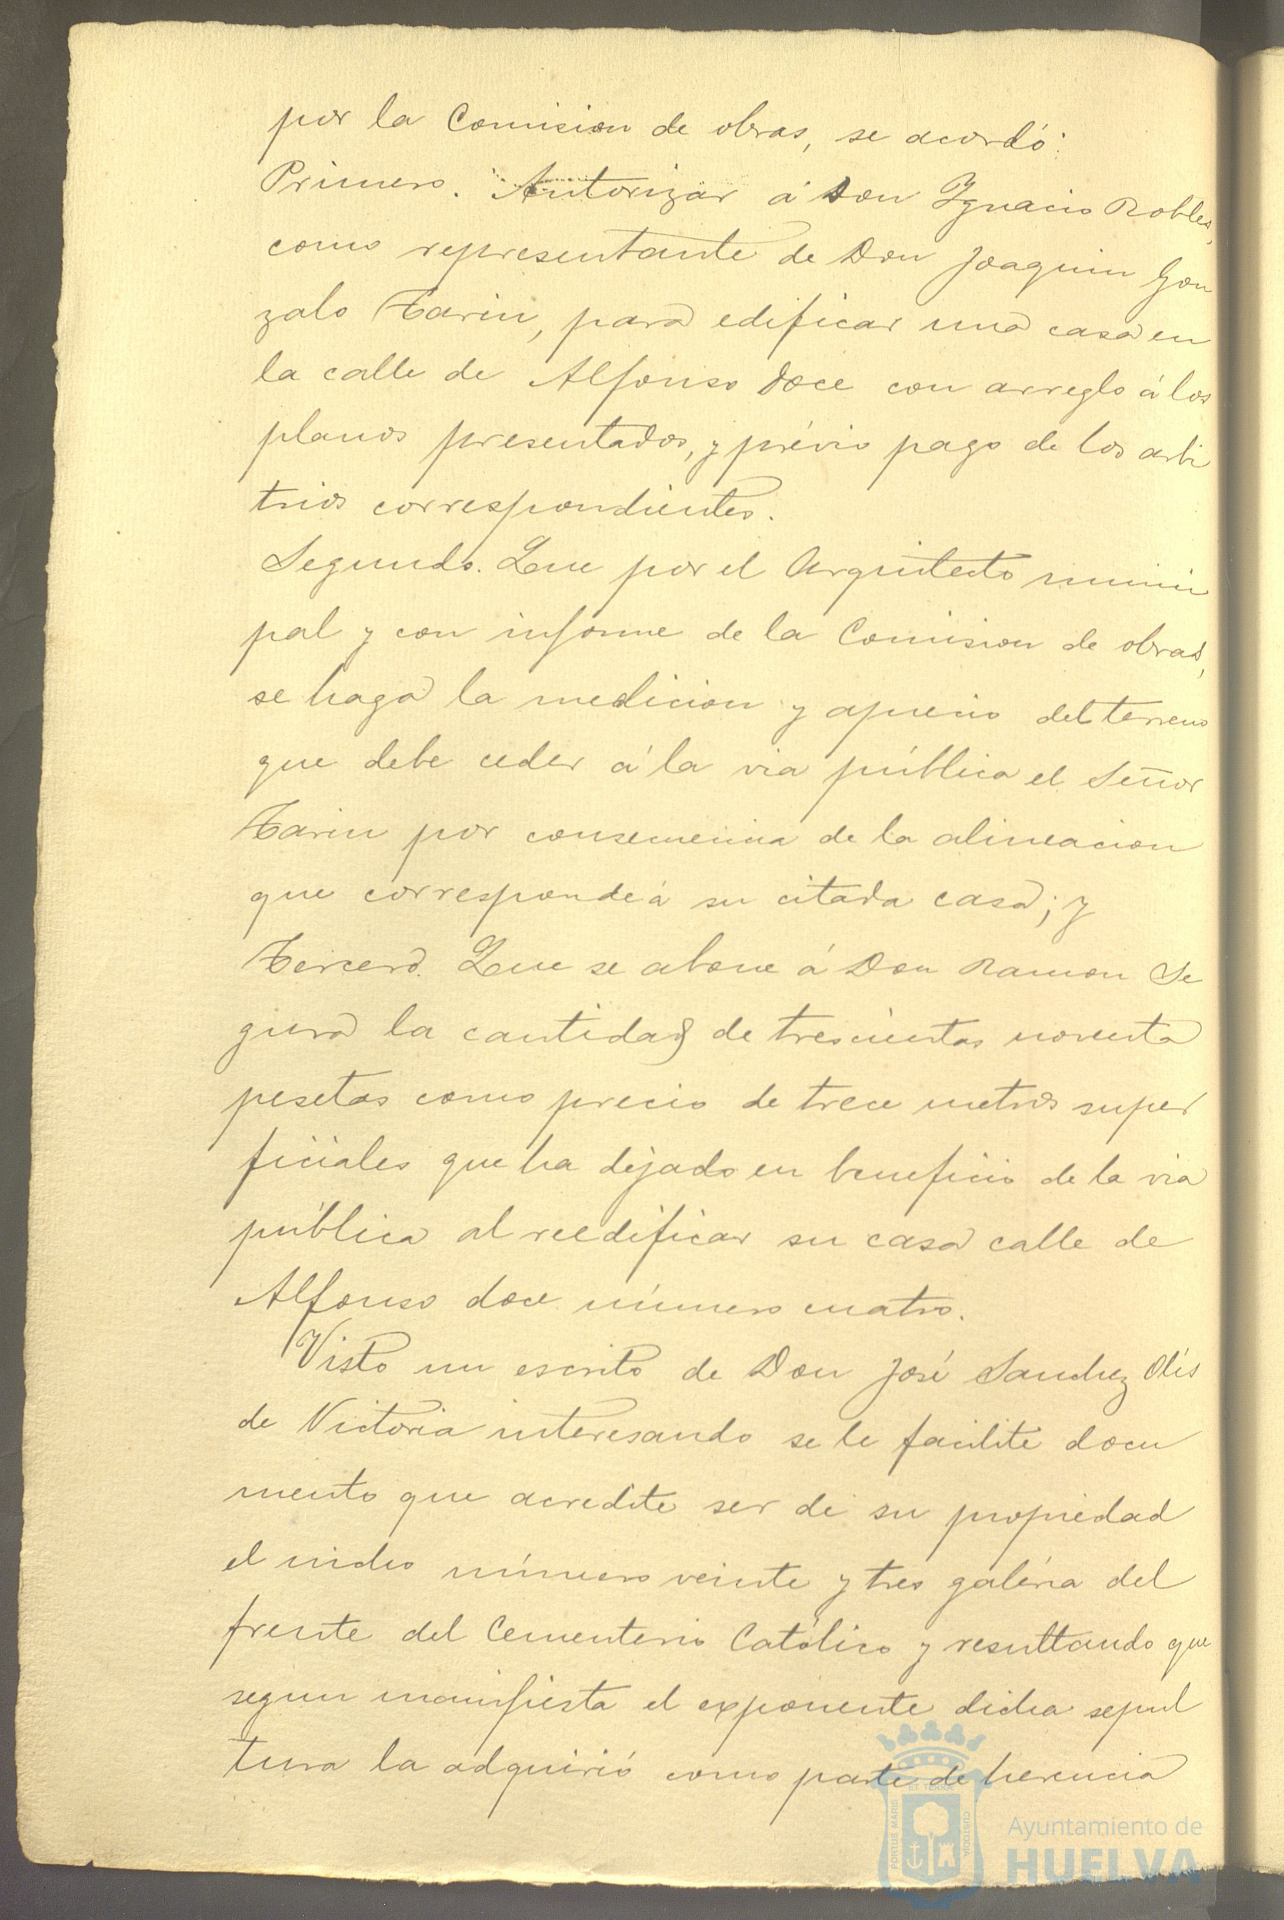 por la Comision de obras, se acordó:
Primero. Autorizar á Don Ygnacio Robles,
como representante de Don Joaquin Gon
zalo Tarin, para edificar una casa en
la calle de Alfonso doce con arreglo á los
planos presentados, y prévio pago de los arbi
trios correspondientes.
Segundo. Que por el Arquitecto munici
pal y con informe de la Comision de obras,
se haga la medicion y aprecio del terreno
que debe ceder á la via pública el Señor
Tarin por consecuencia de la alineacion
que corresponde á su citada casa; y
Tercero. Que se abone á Don Ramon Se
gura la cantidad de trescientas noventa
pesetas como precio de trece metros super
ficiales que ha dejado en beneficio de la via
pública al reedificar su casa calle de
Alfonso doce número cuatro.
Visto un escrito de Don José Sanchez Olís
de Victoria interesando se le facilite docu
mento que acredite ser de su propiedad
el nicho número veinte y tres galéria del
frente del Cementerio Católico y resultando que
segun manifiesta el exponente dicha sepul
tura la adquirió como parte de herencia
Ayuntamiento de
HUELVA
PORTUS MARIS
ET TERRAE
CUSTODIA